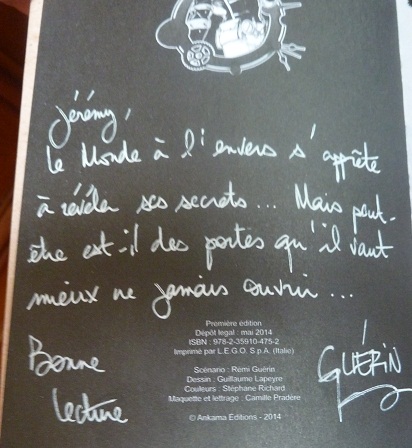 Jérémy,
Le Monde à l'envers s'apprête
à révéler ses secrets... Mais peut-
être est-il des portes qu'il vaut
mieux ne jamais ouvrir...
Bonne
Lecture
GUÉRIN
Première édition
Dépôt légal : mai 2014
ISBN : 978-2-35910-475-2
Imprimé par L.E.G.O. S.p.A. (Italie)
Scénario : Rémi Guérin
Dessin : Guillaume Lapeyre
Couleurs : Stéphane Richard
Maquette et lettrage : Camille Pradère
© Ankama Editions - 2014